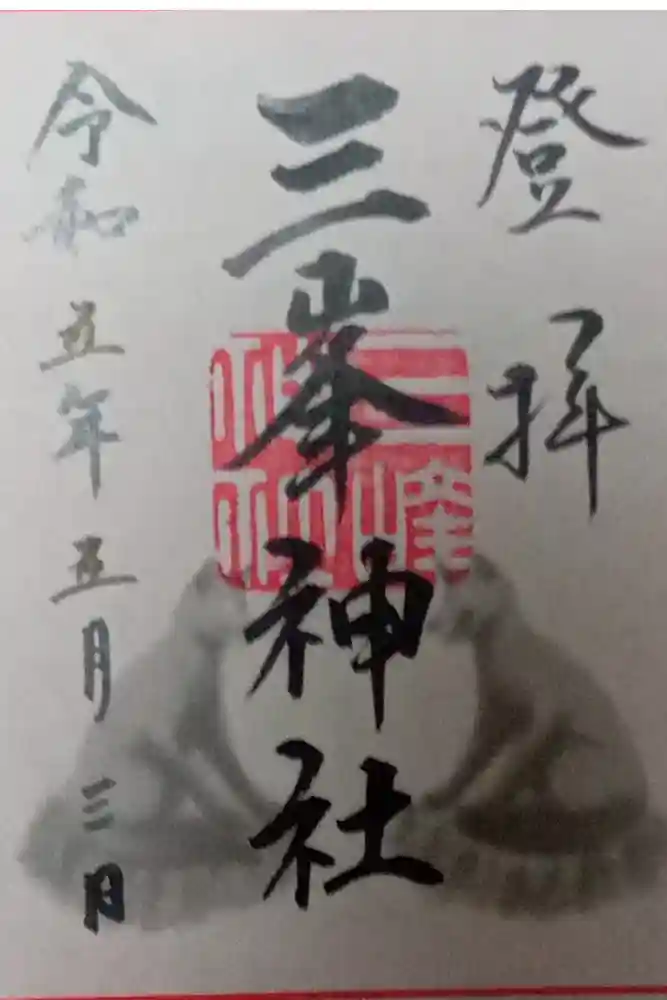 登拝
三峯神社
令和五年五月三日